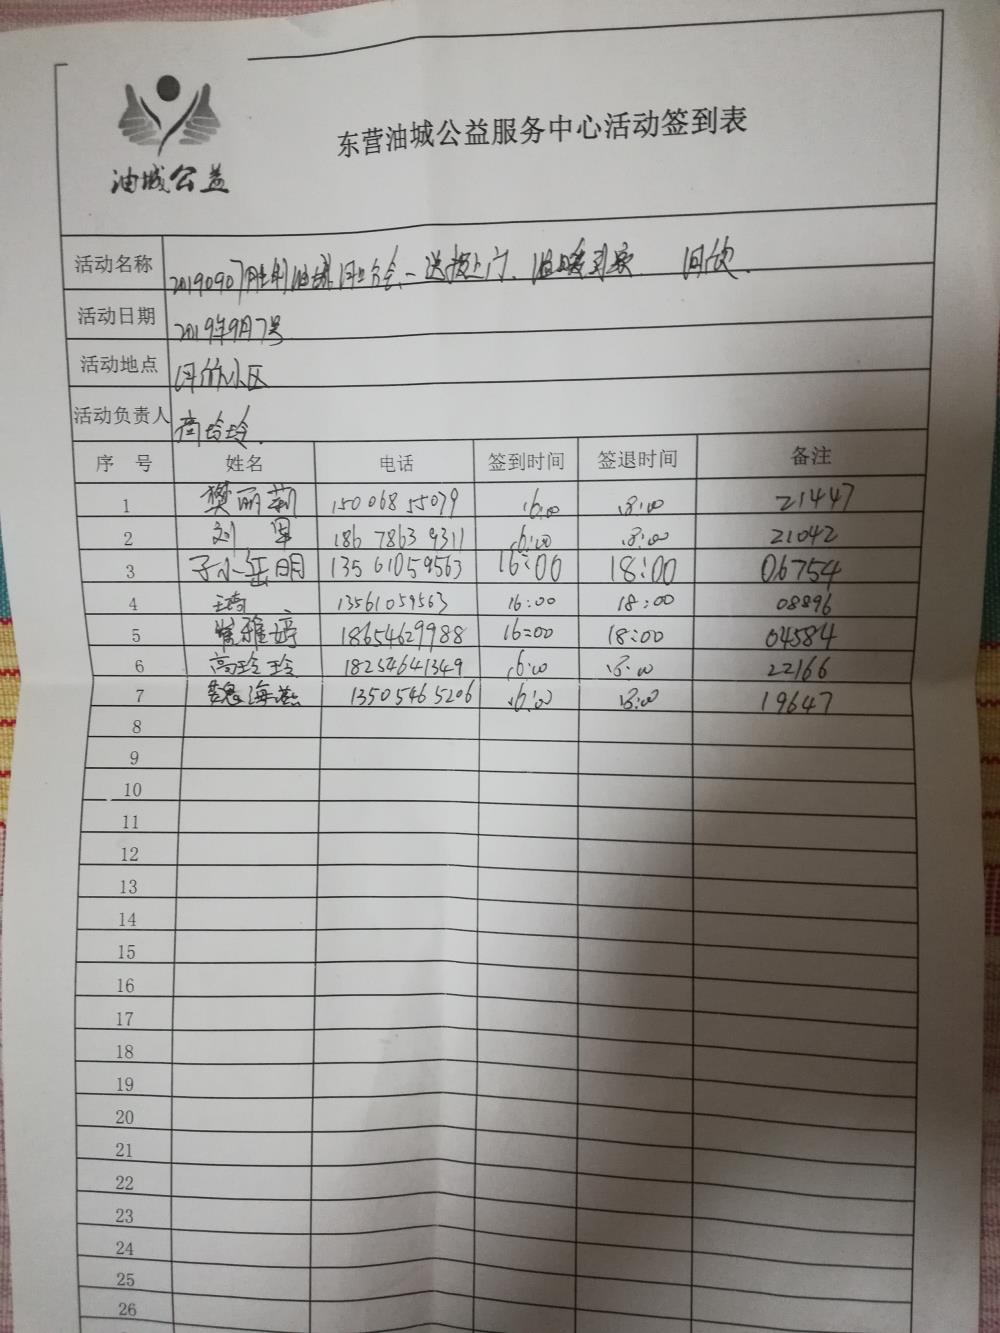 油城公益
东营油城公益服务中心活动签到表
活动名称 20190907胜利油城 送 上门、温暖到家
活动日期 2019年9月7号
活动地点 小区
活动负责人 高玲玲
序 号 姓名 电话 签到时间 签退时间 备注
1 樊丽莉 15006855079 16:00 18:00 21447
2 刘军 18678639311 16:00 18:00 21042
3 13561059563 16:00 18:00 06754
4 13561059563 16:00 18:00 08896
5 18654629988 16:00 18:00 04584
6 高玲玲 18254641349 16:00 18:00 22166
7 魏海燕 13505465206 16:00 18:00 19647
8
9
10
11
12
13
14
15
16
17
18
19
20
21
22
23
24
25
26